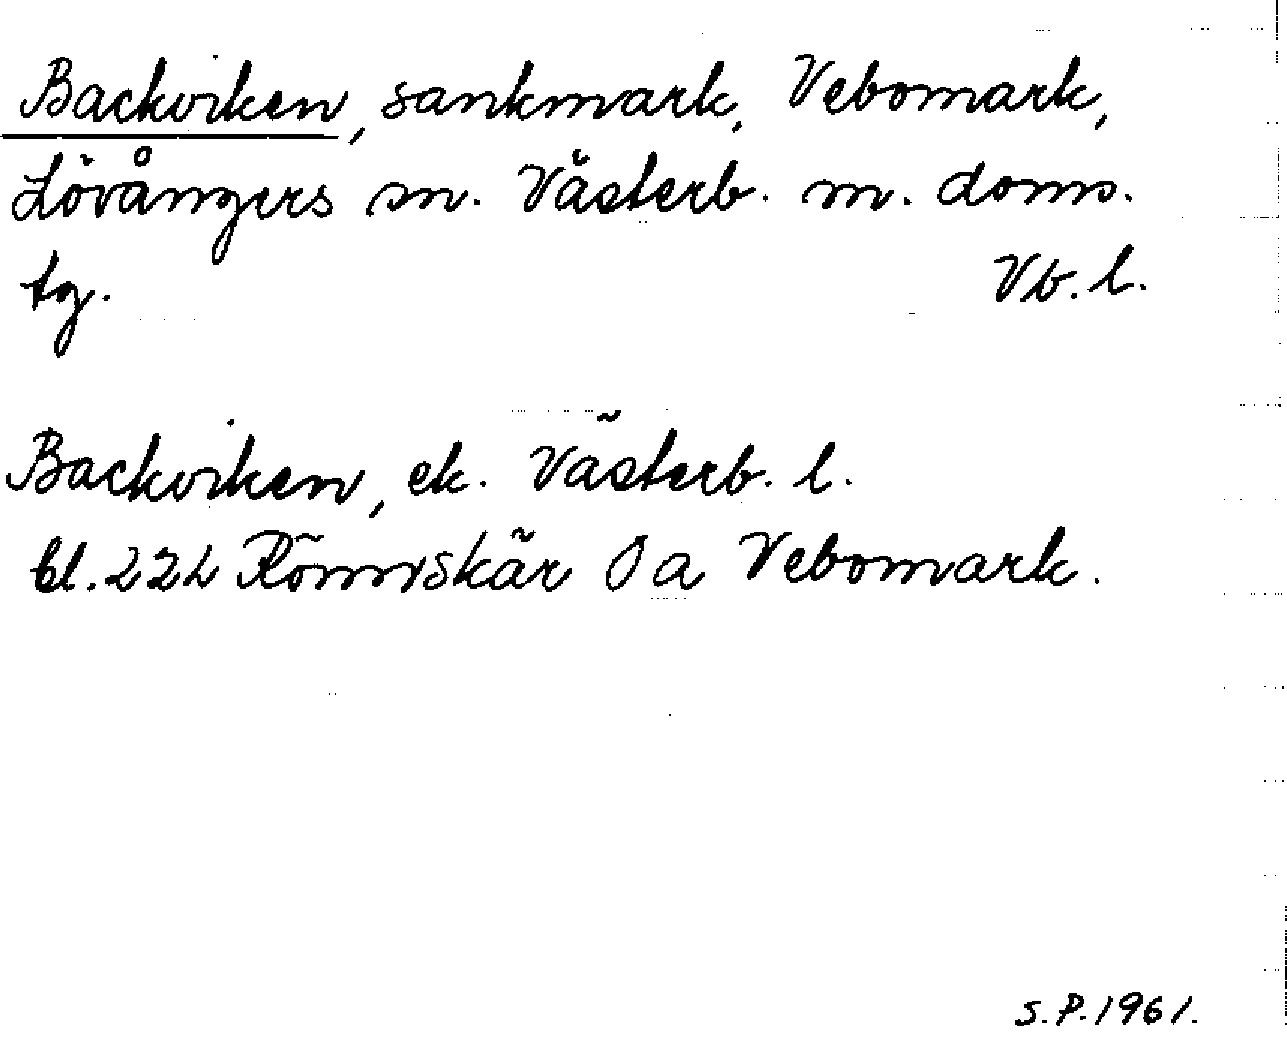 Backviken, sankmark, Vebomark,
Lövångers sn. Västerb. m. doms.
tg. Vb. l.
Backviken, ek. Västerb. l.
bl. 222 Rönnskär Ö a Vebomark.
S.P. 1961.